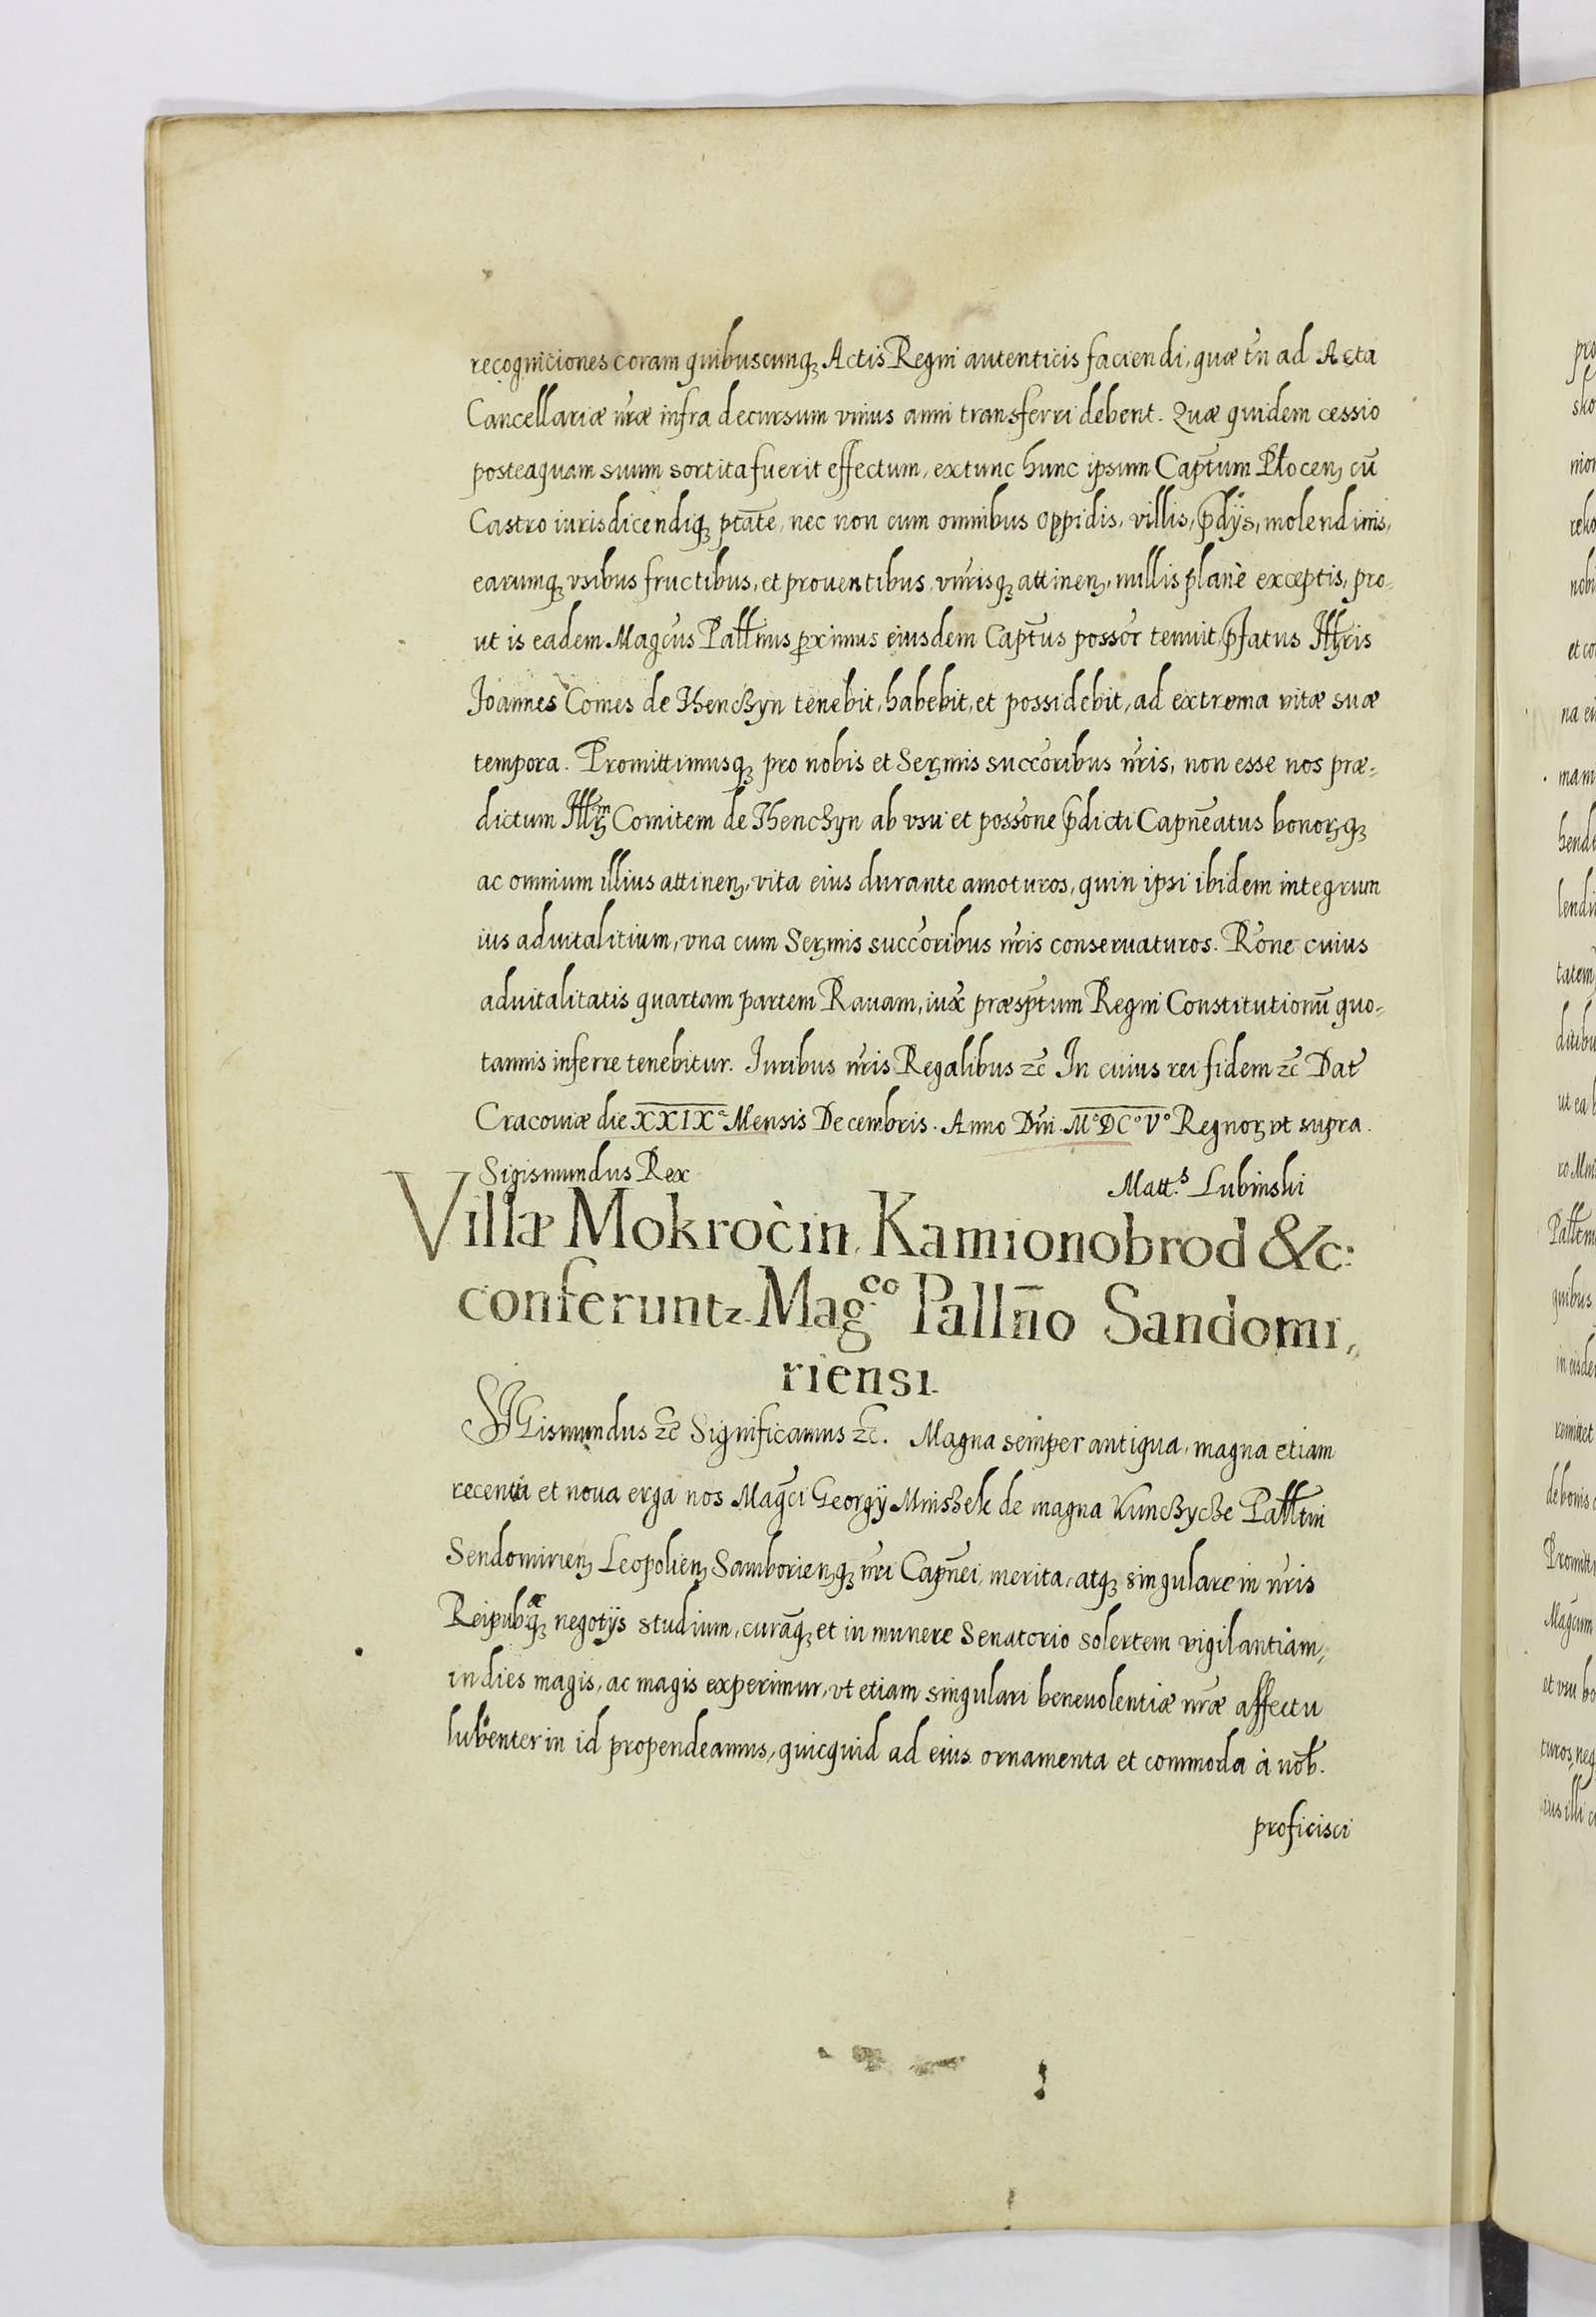 recognitiones coram quibuscunqꝫ Actis Regni autenticis faciendi, quæ tn̄ ad Acta
Cancellariæ nr̄æ infra decursum vnius anni transferri debent. Quæ quidem cessio
posteaquam suum sortita fuerit effectum, extunc hunc ipsum Capt̄um Płocenꝫ cū
Castro iurisdicendiqꝫ ptāte, nec non cum omnibus oppidis, villis, p̄dijs, molendinis,
earumqꝫ vsibus fructibus, et prouentibus, vnīrisqꝫ attinenꝫ, nullis planè exceptis, pro-
ut is eadem Magc̄us Pallt̄nus ꝓximus eiusdem Capt̄us possōr tenuit, p̄fatus Illꝫris
Joannes Comes de Thenczyn tenebit, habebit, et possidebit, ad extrema vitæ suæ
tempora. Promittimusqꝫ pro nobis et Serꝫmis succōribus nr̄is, non esse nos præ-
dictum Illꝫm Comitem de Thenczyn ab vsu et possōne p̄dicti Capnēatus bonorꝫqꝫ
ac omnium illius attinenꝫ, vita eius durante amoturos, quin ipsi ibidem integrum
ius aduitalitium, vna cum Serꝫmis succōribus nr̄is conseruaturos. Rōne cuius
aduitalitatis quartam partem Rauam, iux̄ præsp̄tum Regni Constitutionū quo-
tannis inferre tenebitur. Juribus nr̄is Regalibus ꝛc̄ In cuius rei fidem ꝛc̄ Dat̄
Cracouiæ die XXIXa Mensis Decembris. Anno Dn̄i. Mo DCo Vo Regnorꝫ vt supra.
Sigismundus Rex
Matt.s Lubinski
Villæ Mokrocin, Kamionobrod &c:
conferuntꝛ. Mag.co Palln̄o Sandomi,,
riensi.
SIGismundus ꝛc̄ Significamus ꝛc̄. Magna semper antiqua, magna etiam
recentia et noua erga nos Magc̄i Georgij Mniszek de magna Kunczycze Pallt̄ini
Sendomirienꝫ Leopolienꝫ Samborienꝫqꝫ nr̄i Capnēi, merita, atqꝫ singulare in nr̄is
Reipubæqꝫ negotijs studium, curāqꝫ et in munere Senatorio solertem vigilantiam,
in dies magis, ac magis experimur, vt etiam singulari beneuolentiæ nr̄æ affectu
lubenter in id propendeamus, quicquid ad eius ornamenta et commoda à nōb.
proficisci